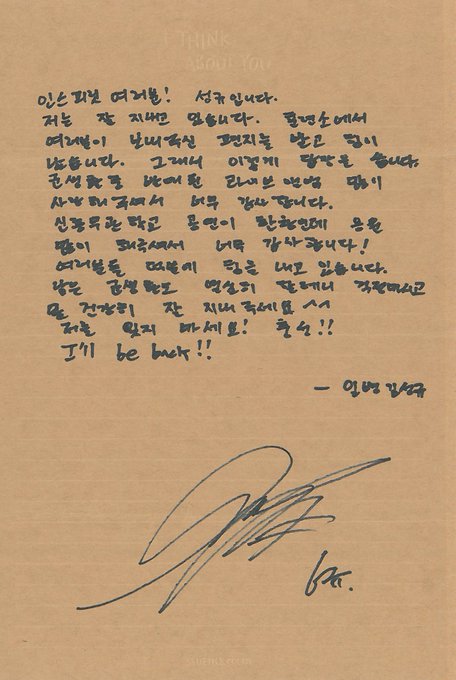 I THINK
ABOUT YOU
인스피릿 여러분! 성규입니다.
저는 잘 지내고 있습니다. 훈련소에서
여러분이 보내주신 편지를 받고 힘이
났습니다. 그래서 이렇게 답장을 씁니다.
군생활 발매된 라이브 앨범 많이
사랑해주셔서 너무 감사합니다.
신흥무관학교 공연이 한창인데 응원
많이 해주셔서 너무 감사합니다!
여러분들 덕분에 힘을 내고 있습니다.
남은 군생활도 열심히 할테니 걱정마시고
몸 건강히 잘 지내주세요 ^^
저를 잊지 마세요! 충성!!
I'll be back!!
- 일병 김성규